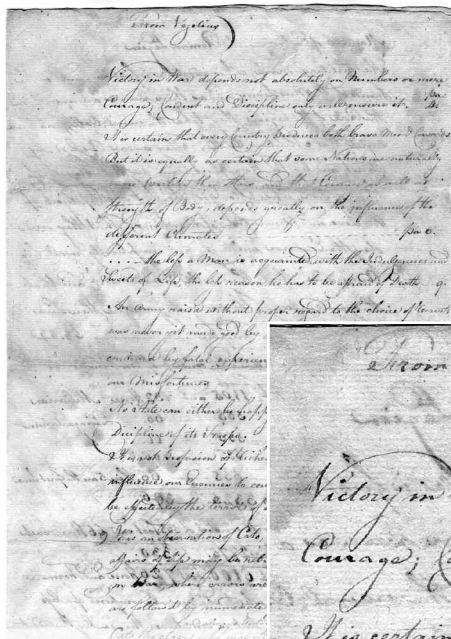 From Vegetius
Victory in War depends not absolutely on Numbers or mere
Courage; Conduct and Discipline only will ensure it. pa 4.
It is certain that every Country produces both brave Men & Cowards
But it is equally as certain that some Nations are naturally
more warlike than others and that Courage as well as
Strength of Body, depends greatly on the influences of the
different Climates pa 6.
.... the less a Man is acquainted with the Indulgences and
Sweets of Life, the less reason he has to be afraid of Death 9.
An Army raised without proper regard to the choice of
was never yet made good by
convinced by fatal experience
our Misfortunes
No State can either be happy
Discipline of its Troops.
It is not profusion of Riches
influenced our Enemies to
be effected by the terror of
It is an observation of Cato
affairs of Life may be
in War where errors are
are followed by immediate
From
Victory in
Courage; (
It is certain